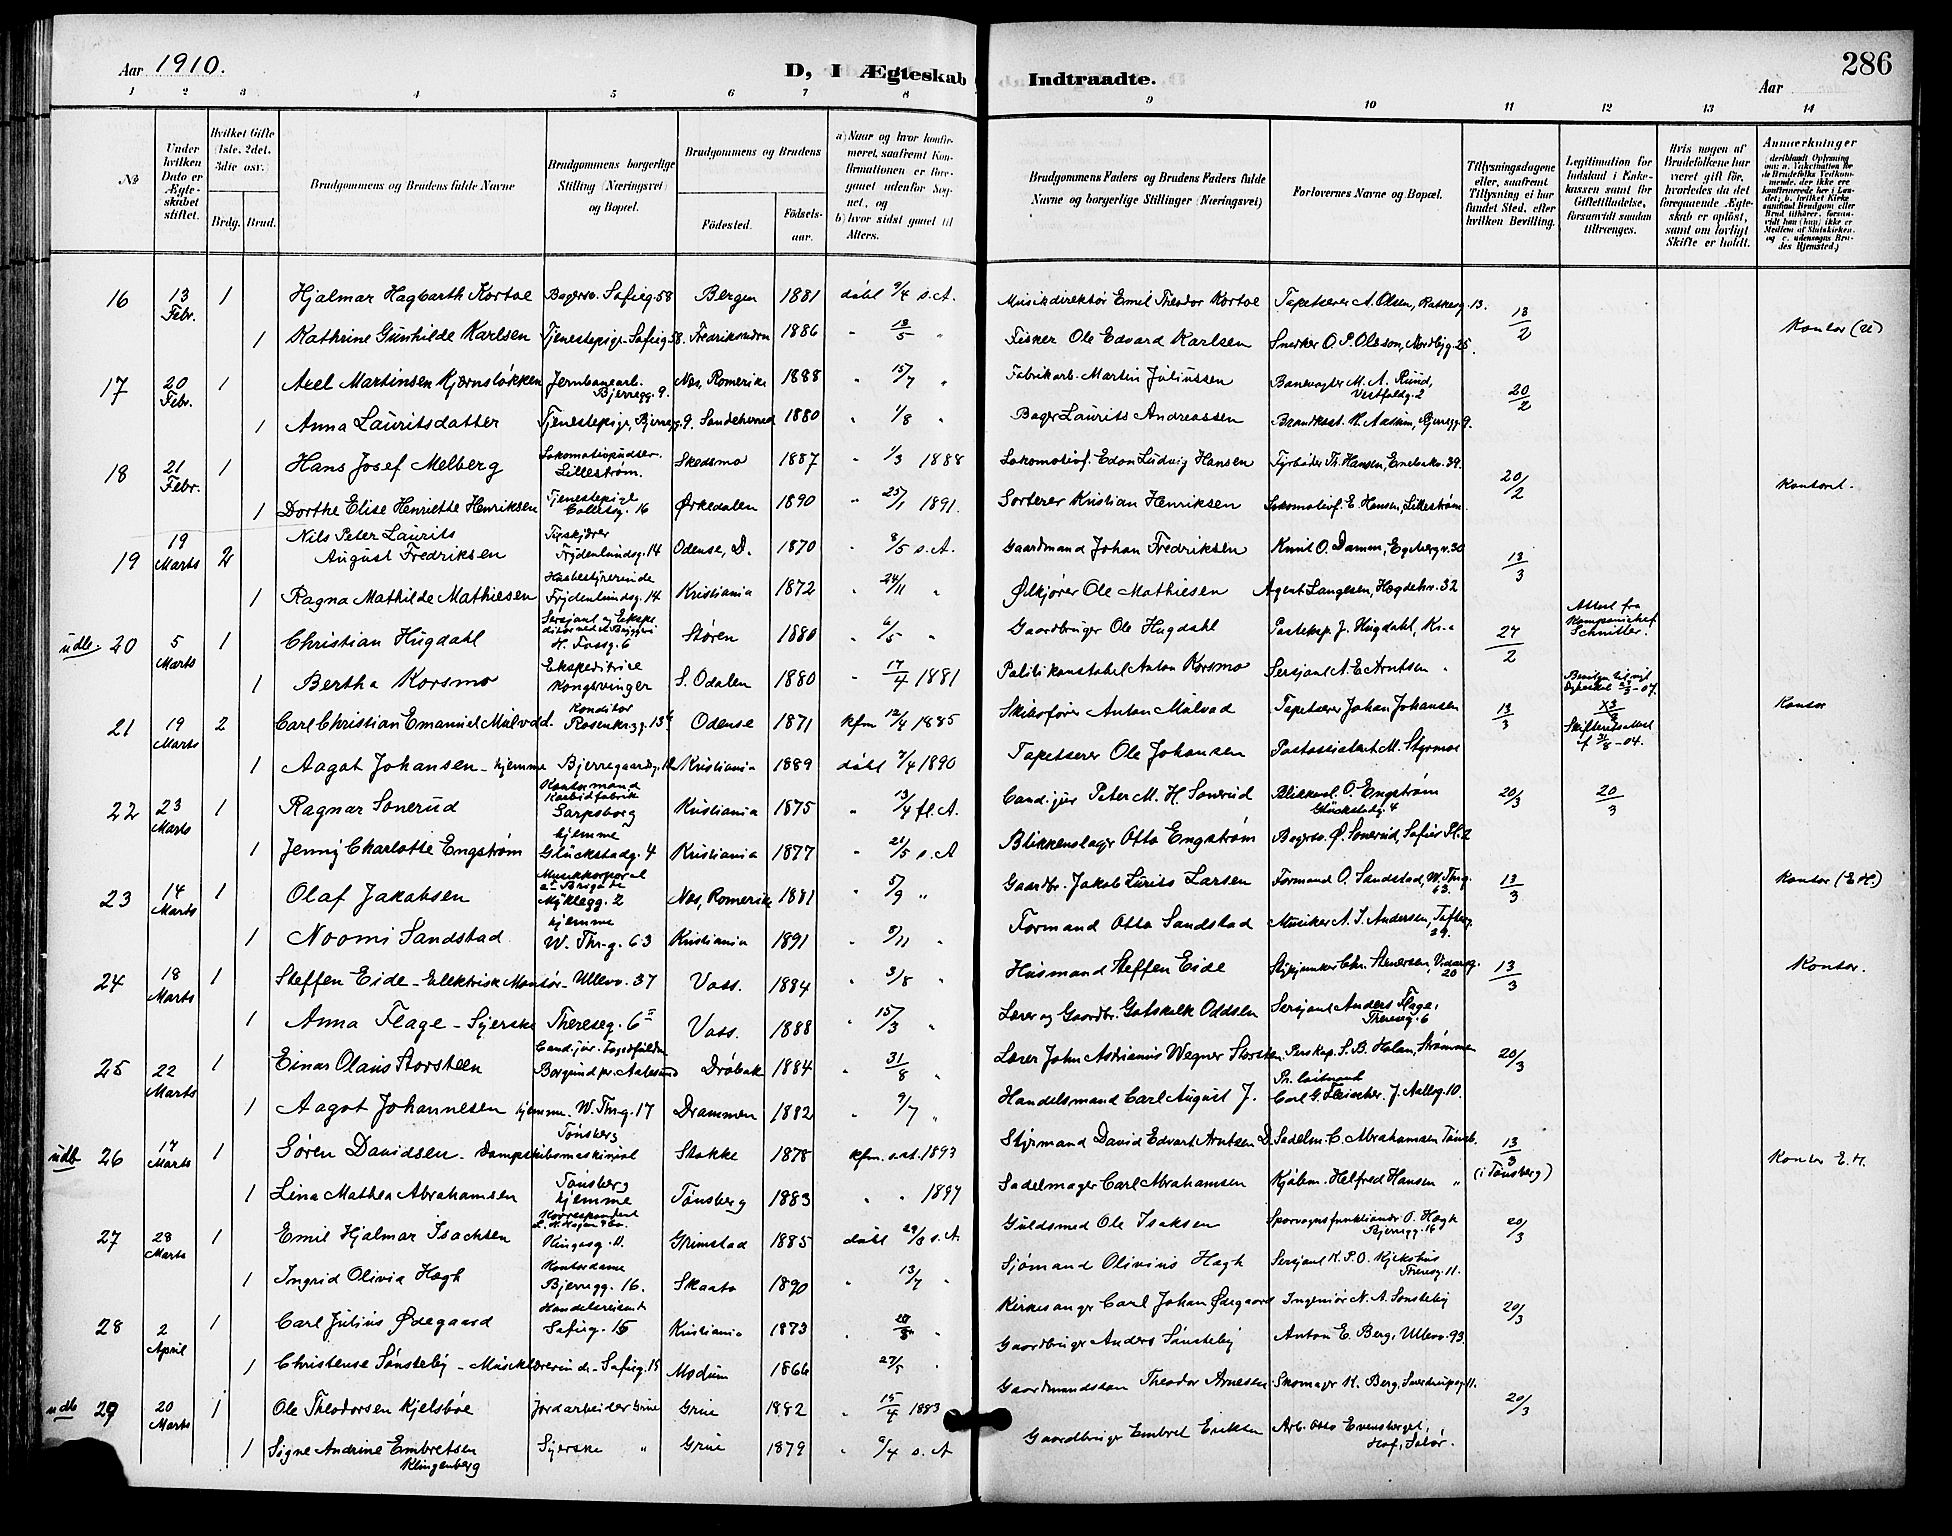 Aar 1910.
D, I Ægteskab Indtraadte.
Aar
286
1 2 3 4 5 6 7 8 9 10 11 12 13 14
No
Under hvilken Dato er Ægteskabet stiftet.
Hvilket Gifte (1ste, 2det, 3die osv.
Brdg. Brud.
Brudgommens og Brudens fulde Navne
Brudgommens borgerlige Stilling (Næringsvei) og Bopæl.
Brudgommens og Brudens
Fødested.
Fødselsaar.
a) Naar og hvor konfirmeret, saafremt Konfirmationen er foregaaet udenfor Sognet, og
b) hvor sidst gaaet til Alters.
Brudgommens Faders og Brudens Faders fulde Navne og borgerlige Stillinger (Næringsvei)
Forlovernes Navne og Bopæl.
Tillysningsdagene eller, saafremt Tillysning ei har fundet Sted, efter hvilken Bevilling.
Legitimation for Indskud i Enkekassen samt for Giftetilladelse, forsaavidt saadan tiltrænges.
Hvis nogen af Brudefolkene har været gift før, hvorledes da det foregaaende Ægteskab er opløst, samt om lovligt Skifte er holdt.
Anmærkninger
16 13 Febr. 1 Hjalmar Hagbarth Kortoe Bagersv. Sofieg. 58 Bergen 1881 døbt 9/4 s.A. Musikdirektør Emil Theodor Kortoe Tapetserer A. Olsen, Ratkesg. 13. 13/2 Kontor
1 Kathrine Gunhilde Karlsen Tjenestepige Sofieg. 58. Fredrikssund 1886 " 13/5 " Fisker Ole Edvard Karlsen Snedker O. P. Olsson, Nordbyg. 25.
17 20 Febr. 1 Axel Martinsen Kjernsløkken Jernbanearb. Bjerregg. 9. Næs, Romerike 1888 " 15/7 " Fabrikarb. Martin Juliussen Banevogter M. A. Ruud, Vestfoldg. 2 20/2
1 Anna Lauritsdatter Tjenestepige, Bjerregg. 9. Sandeherred 1880 " 1/8 " Bager Laurits Andreassen
18 21 Febr. 1 Hans Josef Melberg Lokomotivpudser Lillestrøm. Skedsmo 1887 " 1/3 1888 Lokomotivf. Edon Ludvig Hansen Fyrbøder Th. Hansen, Enebakv. 39. 20/2 Kontoret.
1 Dorthe Elise Henriette Henriksen Tjenestepige Colletsg. 16 Ørkedalen 1890 " 25/1 1891. Sorterer Kristian Henriksen Lokomotivf. E. Hansen, Lillestrøm.
19 19 Marts 2 Nils Peter Laurits August Fredriksen Frydenlundsg. 14 Odense, D. 1870 " 8/5 s.A. Gaardmand Johan Fredriksen Knut O. Damm, Egebergv. 30 13/3
1 Ragna Mathilde Mathiesen Husbestyrerinde Frydenlundsg. 14 Kristiania 1872 " 24/11 " Ølkjører Ole Mathiesen Agent Langesen, Hegdehv. 32
udb. 20 5 Marts 1 Christian Hugdahl Sersjant og Ekspeditør ved et Bryggeri H. Fossg. 6 Støren 1880 " 6/5 " Gaardbruger Ole Hugdahl Posteksp. J. Hugdahl, Kr.a 27/2 Attest fra Kompanichef Schnitler.
1 Bertha Korsmo Ekspeditrice Kongsvinger S. Odalen 1880 " 17/4 1881 Politikonstabel Anton Korsmo Sersjant A. E. Arntsen "
21 19 Marts 2 Carl Christian Emanuel Mulvad. Konditor Rosenkrzg. 13 Odense 1871 kfm 12/4 1885 Skibsfører Anton Mulvad Tapetserer Johan Johansen 13/3 Skifteretsattest f 31/8 - 04. Kontor
1 Aagot Johansen - hjemme Bjerregaardsg. Kristiania 1889 døbt 7/4 1890 Tapetserer Ole Johansen Postassistent M. Styrmoe
22 23 Marts 1 Ragnar Sonerud Kontormand Karbidfabrik Sarpsborg Kristiania 1875 " 13/4 fl.A. Cand. jur Peter M. H. Sonerud Blikkensl. O. Engstrøm Glückstadg 4 20/3 20/3
1 Jenny Charlotte Engstrøm hjemme Glückstadg. 4 Kristiania 1877 " 21/5 s.A Blikkenslager Otto Engstrøm Bagersv. Ø. Sonerud, Sofies Pl. 2
23 14 Marts 1 Olaf Jakobsen Musikkorporal 2den Brigade Myklegg. 2 Næs, Romerike 1881 " 5/9 " Gaardbr. Jakob Lurits Larsen Formand O. Sandstad, W. Thrg. 63. 13/3 Kontor (E.H.)
1 Noomi Sandstad hjemme W. Thr.g. 63 Kristiania 1891 " 8/11 " Formand Otto Sandstad Musiker A. I. Andersen, Tofteg. 29.
24 18 Marts 1 Steffen Eide - Elektrisk Montør - Ullevv. 37 Voss. 1884 " 3/8 " Husmand Steffen Eide 13/3 Kontor.
1 Anna Flage - Syerske Thereseg. 6 Voss. 1888 " 15/3 " Lærer og Gaardbr. Gotskalk Oddsen Sersjant Anders Flage, Thereseg. 6
25 22 Marts 1 Einar Olaus Storsteen Cand. jur. Borgund pr. Aalesund Drøbak 1884 " 31/8 " Lærer John Adrianus Wegner Storsteen, S. B. Holan, Strømmen 20/3
1 Aagot Johannesen hjemme. W. Thrg. 17 Drammen 1882 " 9/7 " Handelsmand Carl August J. Pr. løitnant Carl G. Fleischer, J. Aallsg. 10.
udb 26 17 Marts 1 Søren Davidsen - Dampskibsmaskinist Tønsberg Stokke 1878 kfm. s.st. 1893 Styrmand David Edvart Arntsen D. Sadelm. C. Abrahamsen Tønsb. 13/3 (i Tønsberg) Kontor E.H.
1 Lina Mathea Abrahamsen Tønsberg hjemme Tønsberg 1883 " " 1897 Sadelmager Carl Abrahamsen Kjøbm. Helfred Hansen "
27 28 Marts 1 Emil Hjalmar Isachsen Korrespondent Ringesg. 11. Grimstad 1885 døbt 29/8 s.A. Guldsmed Ole Isaksen Sporvognsfunktionær O. Hægh Bjerregg. 16 20/3
1 Ingrid Olivia Hægh Kontordame Bjerregg. 16. Skaato 1890 " 13/7 " Sjømand Olivius Hægh Sersjant K. P. O. Kjekshus Thereseg. 11.
28 2 April 1 Carl Julius Ødegaard Handelsreisende Sofieg. 15 Kristiania 1873 " Kirkesanger Carl Johan Ødegaard Ingeniør N. A. Sønsteby 20/3
1 Christense Sønsteby - Musiklærerinde - Sofieg. 15 Modum 1866 " 27/5 " Gaardbruger Anders Sønsteby Anton E. Berg, Ullevv. 93.
udb 29 20 Marts 1 Ole Theodorsen Kjelsbøe Jordarbeider Grue Grue 1882 " 15/4 1883 Gaardmandssøn Theodor Arnesen Skomager K. Berg, Sverdrupsg. 11. 20/3
1 Signe Andrine Embretsen Klingenberg Syerske " Grue 1879 " 9/4 s.A Gaardbruger Embret Eriksen Arb. Otto Evensberget, Hof, Solør.